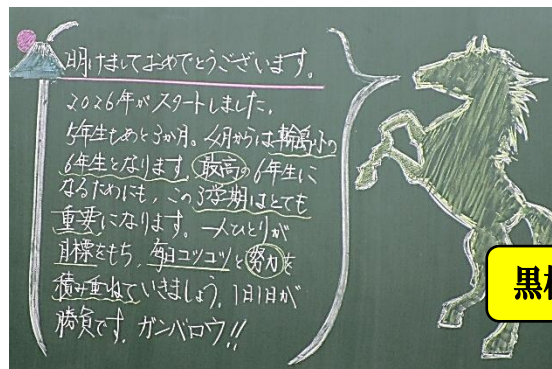 明けましておめでとうございます。
2026年がスタートしました。
5年生もあと3か月。4月からは輪島小の
6年生となります。最高の6年生に
なるためにも、この3学期はとても
重要になります。一人ひとりが
目標をもち、毎日コツコツと努力を
積み重ねていきましょう。1日1日が
勝負です。ガンバロウ!!
黒板